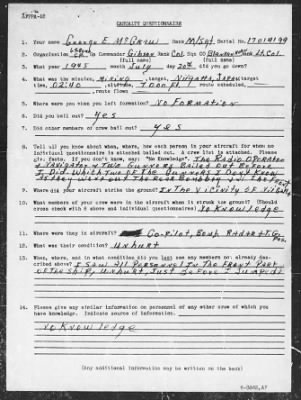 CASUALTY QUESTIONNAIRE
1. Your name George E McGraw Rank M/Sgt. Serial No. 17019199
2. Organization Gp Commander Gibson Rank Col. Sqn CO Rank Lt. Col.
(full name) (full name)
3. What year 1945 month July day 20th did you go down?
4. What was the mission, Mining, target, Niigata, Japan, target
time, 0240, altitude, 7000 Ft., route scheduled,
route flown
5. Where were you when you left formation? No Formation
6. Did you bail out? Yes
7. Did other members of crew bail out? Yes
8. Tell all you know about when, where, how each person in your aircraft for whom no
individual questionnaire is attached bailed out. A crew list is attached. Please
give facts. If you don't know, say: "No Knowledge". The Radio Operator
& Navigator & Two Gunners Bailed Out Before
I Did. Which Two Of The Gunners I Dont Know
As They Went Out The Rear
9. Where did your aircraft strike the ground? In The Vicinity Of Niigata
10. What members of your crew were in the aircraft when it struck the ground? (Should
cross check with 8 above and individual questionnaires)
No Knowledge
11. Where were they in aircraft? Co-Pilot, Bomb, Radar & T.G. Pos.
12. What was their condition? Unhurt
13. When, where, and in what condition did you last see any members not already des-
cribed above? I Saw All Personnel In The Front Part
Of The Ship, Unhurt, Just Before I Jumped
14. Please give any similar information on personnel of any other crew of which you
have knowledge. Indicate source of information.
No Knowledge
(Any additional information may be written on the back)